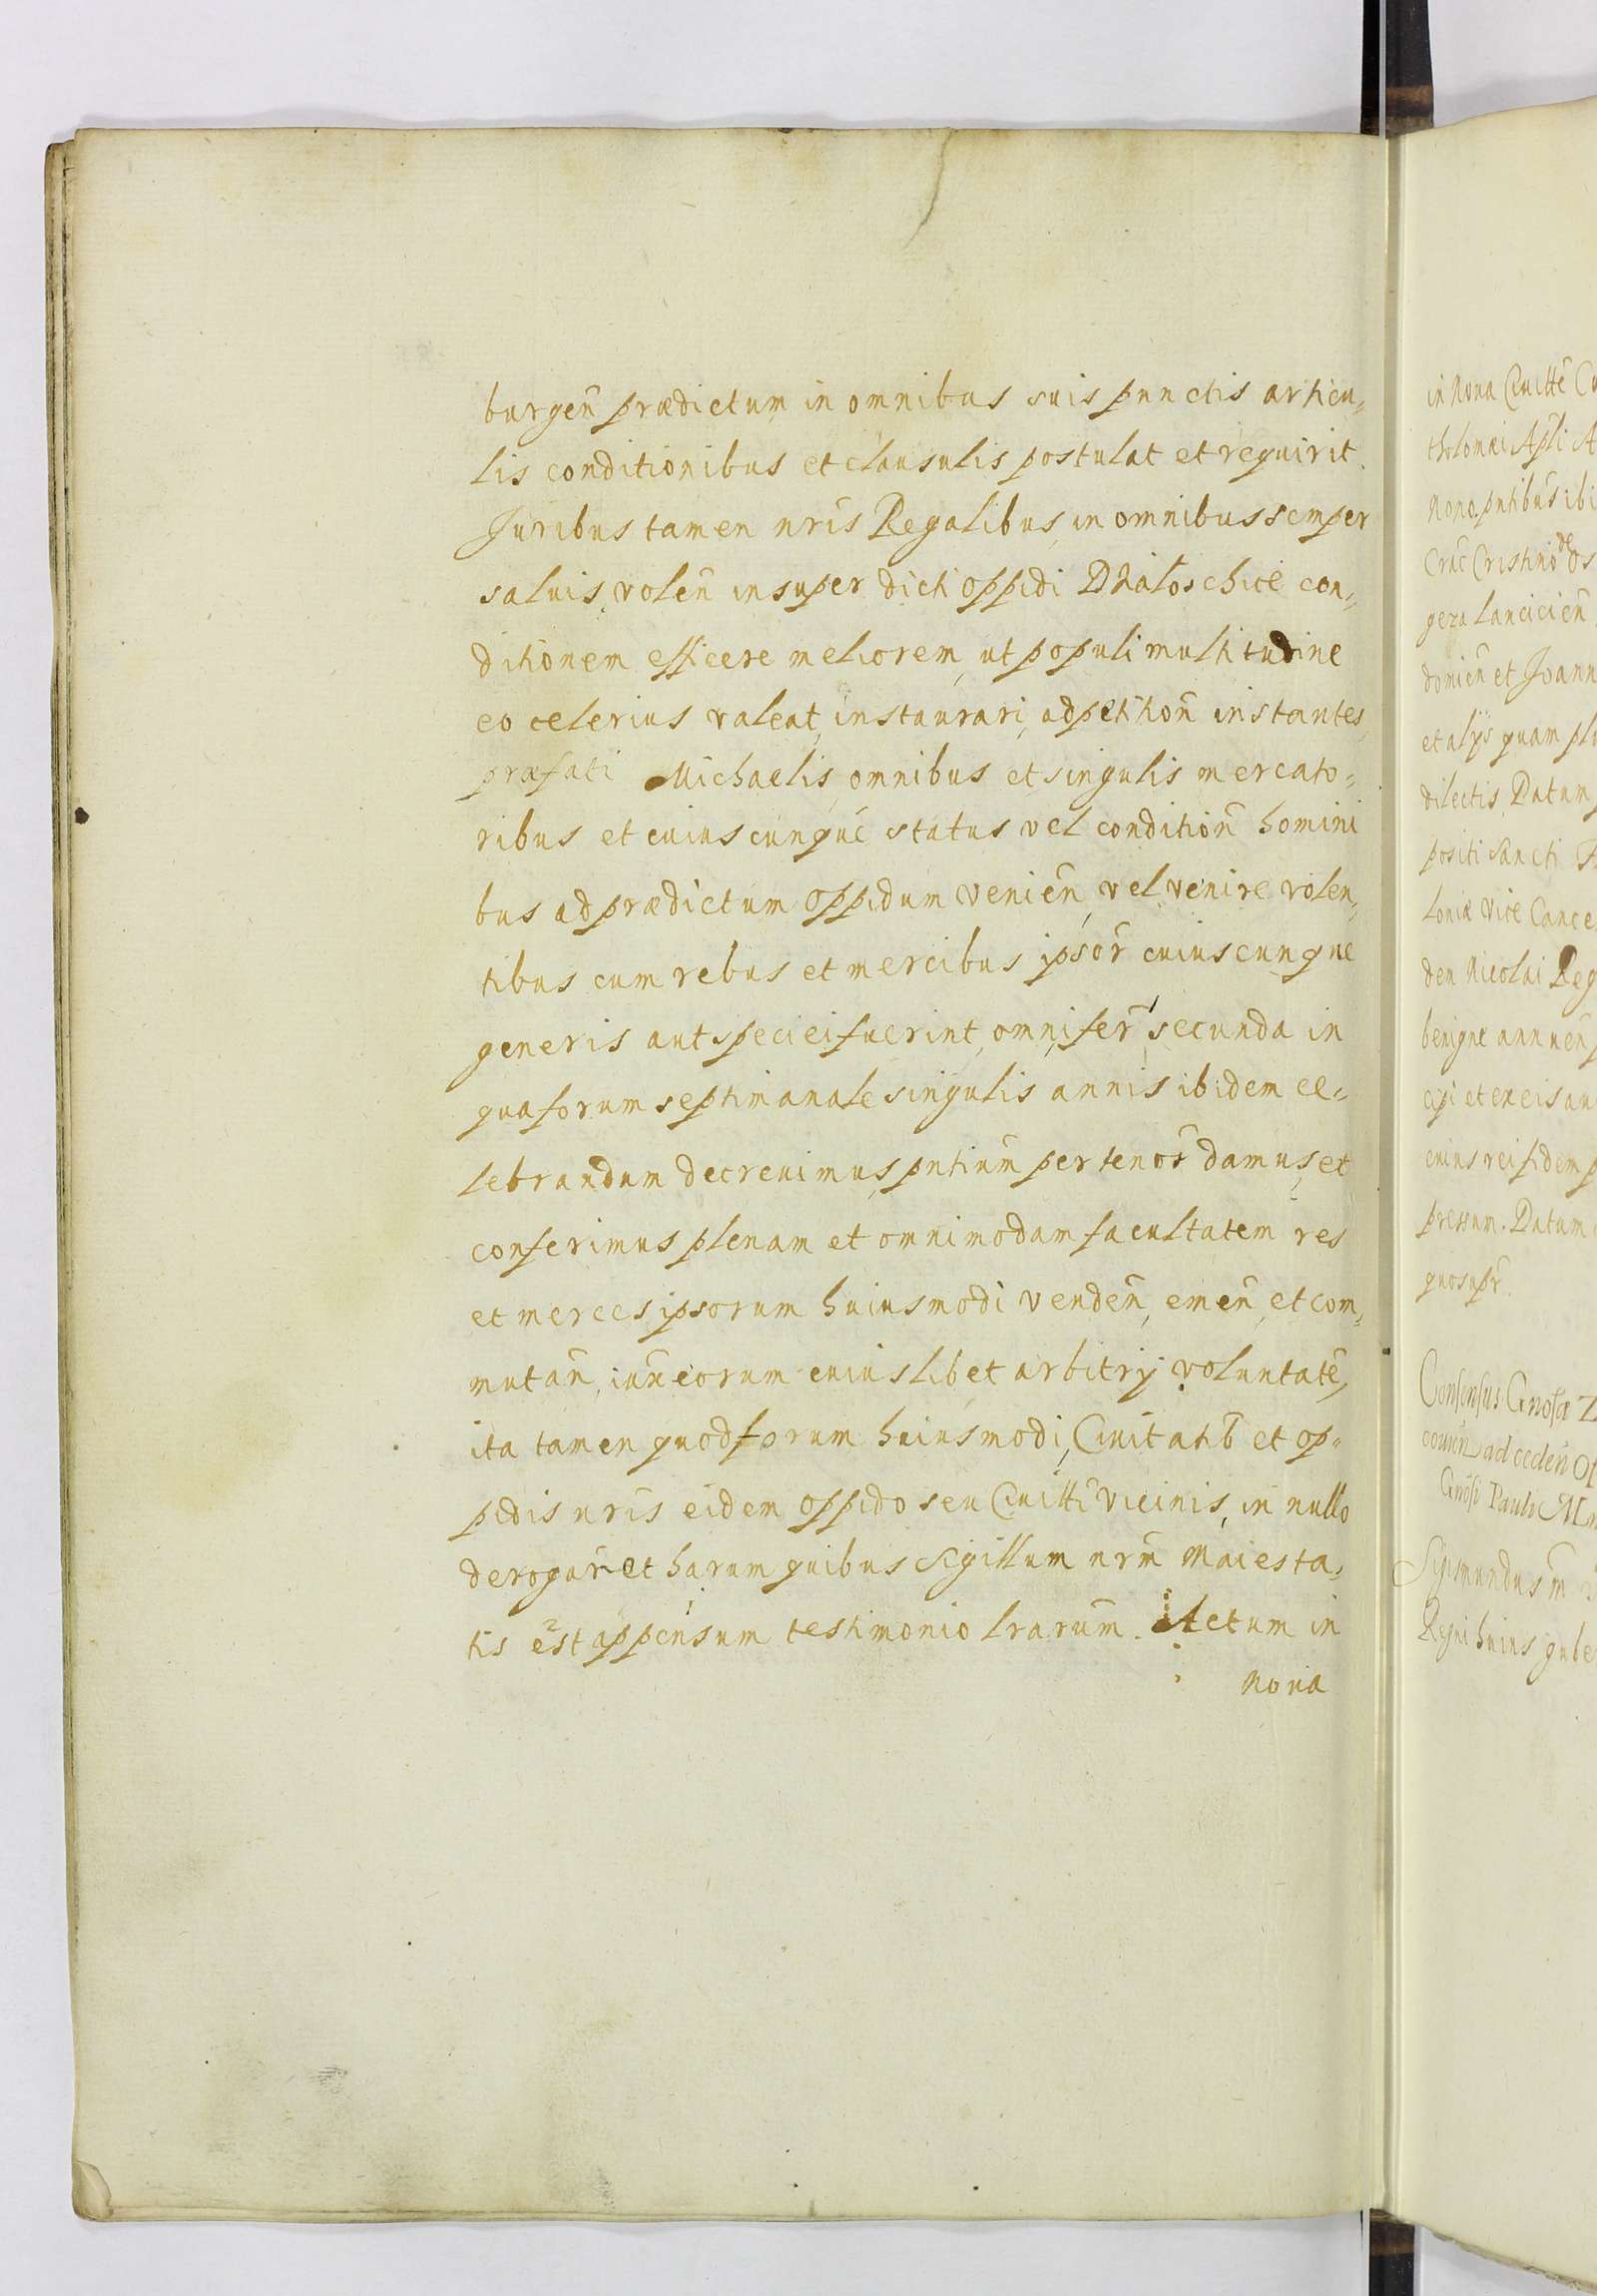 burgen̄ prædictum in omnibus suis punctis articu„
lis conditionibus et clausulis postulat et requirit.
Juribus tamen nr̄is Regalibus, in omnibus semper
saluis, volen̄ insuper dicti oppidi Działoschice con„
ditionem efficere meliorem, ut populi multitudine
eo celerius valeat, instaurari, ad petition̄ instantes,
præfati Michaelis, omnibus et singulis mercato„
ribus et cuiuscunque status vel condition̄ homini
bus ad prædictum oppidum venien̄, vel venire volen„
tibus cum rebus et mercibus ipsor̄ cuiuscunque
generis aut speciei fuerint, omni fer̄ secunda in
qua forum septimanale singulis annis ibidem ce„
lebrandum decreuimus, pn̄tium per tenor̄ damus, et
conferimus plenam et omnimodam facultatem res
et merces ipsorum huiusmodi venden̄, emen̄, et com„
mutan̄, iux̄ eorum cuiuslibet arbitrÿ voluntatē,
ita tamen quod forum huiusmodi, Ciuitatib̄ et op„
pidis nr̄is eidem oppido seu Ciuitti vicinis, in nullo
derogar̄ et harum quibus sigillum nr̄m Maiesta„
tis est appensum testimonio lr̄arum. Actum in
Noua
in Noua Ciuitte
tholomæi Apl̄i
Nono. pn̄tibus ibi
Crac̄ Cristino de
geza lancicien̄
domien̄ et Joann
et alÿs quam plu
dilectis, Datum
positi Sancti
loniæ Vice Cance
den Nicolai Reg
benigne annuen̄
cipi et ex eis au
cuius rei fidem
pressum. Datum
quo supr̄.
Consensus Gnosæ
ad ceden̄
Gnosi Pauli
Sigismundus
Regni huius gube